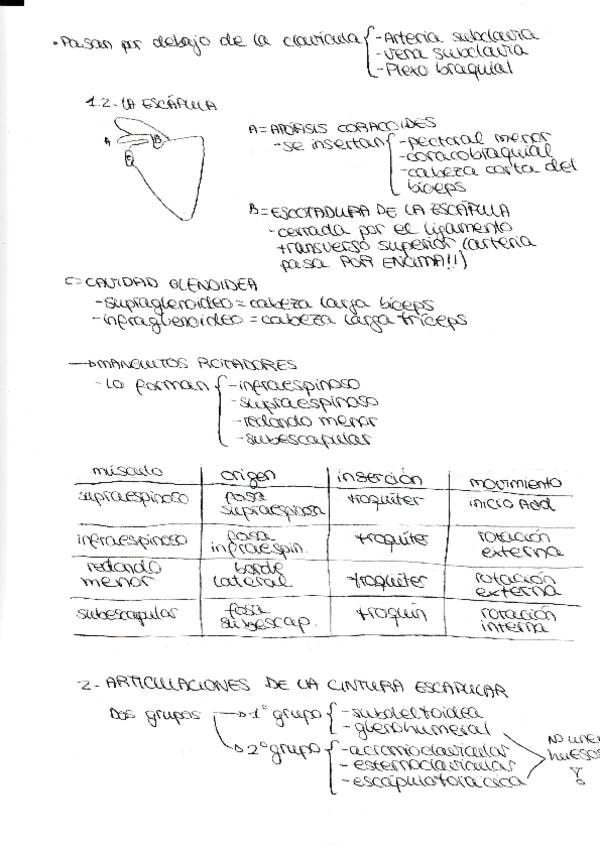 · Pasan por debajo de la clavícula { - Arteria subclavia
- vena subclavia
- Plexo braquial
1.2.- LA ESCÁPULA
A = APÓFISIS CORACOIDES
- se insertan { - pectoral menor
- coracobraquial
- cabeza corta del
bíceps
A
B
C
B = ESCOTADURA DE LA ESCÁPULA
- cerrada por el ligamento
transverso superior (arteria
pasa POR ENCIMA!!)
C = CAVIDAD GLENOIDEA
- supraglenoideo = cabeza larga bíceps
- infraglenoideo = cabeza larga tríceps
→ MANGUITOS ROTADORES
- Lo forman { - infraespinoso
- supraespinoso
- redondo menor
- subescapular
músculo | origen | inserción | movimiento
supraespinoso | fosa supraespinosa | troquiter | inicio Add
infraespinoso | fosa infraespin. | troquiter | rotación externa
redondo menor | borde lateral | troquiter | rotación externa
subescapular | fosa subescap. | troquín | rotación interna
2.- ARTICULACIONES DE LA CINTURA ESCAPULAR
Dos grupos → 1º grupo { - subdeltoidea
- glenohumeral
→ 2º grupo { - acromioclavicular
- esternoclavicular
- escapulotorácica
NO unen
huesos